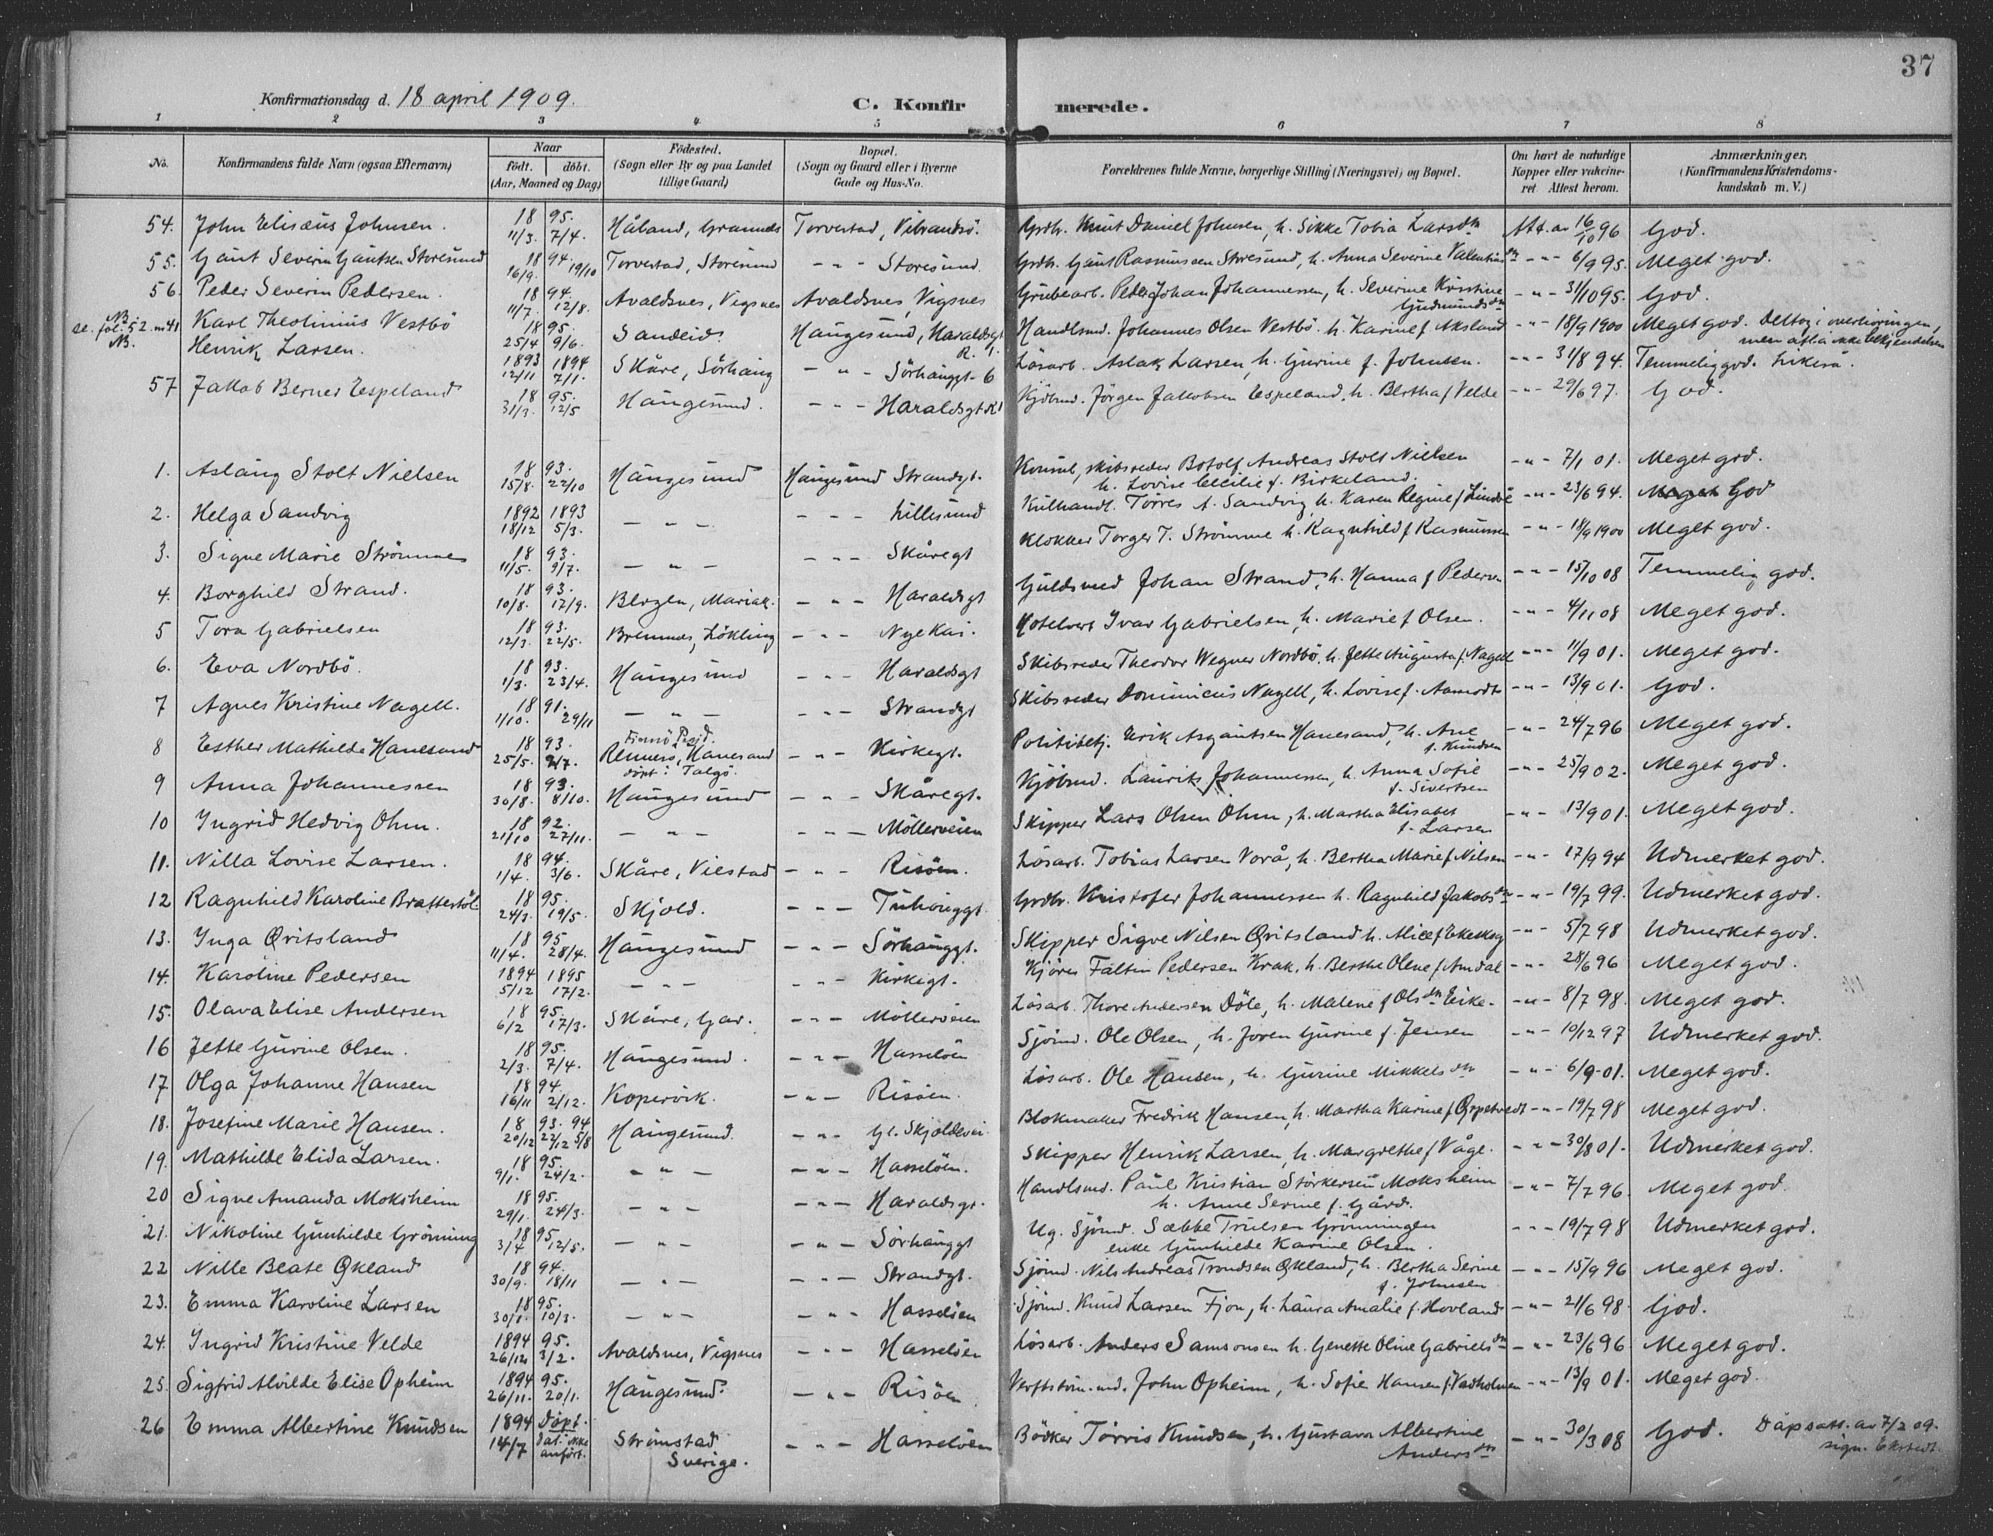 37
Konfirmationsdag d. 18 april 1909.
C. Konfirmerede.
1 2 3 4 5 6 7 8
No. Konfirmandens fulde Navn (ogsaa Efternavn) Naar født. døbt. (Aar, Maaned og Dag) Fødested. (Sogn eller By og paa Landet tillige Gaard) Bopæl. (Sogn og Gaard eller i Byerne Gade og Hus-No. Forældrenes fulde Navne, borgerlige Stilling (Næringsvei) og Bopæl. Om havt de naturlige Kopper eller vakcineret. Attest herom. Anmærkninger. (Konfirmandens Kristendomskundskab m. V.)
54. John Elisæus Johnsen. 18 95. 11/3. 7/4. Håland, Torvestad, Vibrandsö. Grdb. Knut Daniel Johnsen, h. Sikke Tobia Larsdtr Att. av 16/10 96 God.
55. Gaut Severin Gautsen Storesund 18 94. 16/9. 19/10 Torvestad, Storesund - " - Storesund. Grdb. Gaut Rasmussen Storesund, h. Anna Severine Valentinsdtr - " - 6/9 95. Meget god.
56. Peder Severin Pedersen. 18 94. 11/7. 12/8. Avaldsnes, Vigsnes Avaldsnes, Vigsnes Grubearb. Peder Johan Johannessen, h. Severine Kristine Gudmundsdtr - " - 31/10 95. God.
NB. se fol. 52. n 41 Karl Theolinius Vestbö 18 95. 25/4 9/6. Sandeid. Haugesund, Haraldsgt Handlsmd. Johannes Olsen Vestbö. h. Karine f. Aksland - " - 18/9 1900 Meget god. Deltog i overhöringen, men avla ikke bekjendelsen
NB. Henrik Larsen. 1893 1894 12/11 7/1. Skåre, Sörhaug - " - Sörhauggt. 6 Lösarb. Aslak Larsen, h. Gurine f. Johnsen. - " - 31/8 94. Temmelig god. Likeså.
57 Jakob Berner Espeland 18 95. 31/3. 12/5 Haugesund. - " - Haraldsgt. Kjöbmd. Jörgen Jakobsen Espeland, h. Bertha f Velde - " - 29/6 97. God.
1. Aslaug Stolt Nielsen 18 93. 15/8. 22/10 Haugesund Haugesund Strandgt. Konsul, skibsreder Botolf Andreas Stolt Nielsen h. Lovise Cecilie f. Birkeland. - " - 7/1 01. Meget god.
2. Helga Sandvig 1892 1893 18/12 5/3. - " - - " - Lillesund Kulhandl. Törres A. Sandvig, h. Karen Regine f. - " - 23/6 94. Meget God
3. Signe Marie Strömme 18 93. 11/5. 9/7. - " - - " - Skåregt Klokker Torger T. Strömme h. Ragnhild f Rasmussen - " - 18/9 1900 Meget god.
4. Borghild Strand. 18 93. 10/8. 17/9. Bergen, Mariak. - " - Haraldsgt Guldsmed Johan Strand, h. Hanna f Pedersen - " - 15/10 08 Temmelig god.
5 Tora Gabrielsen 18 93. 12/3. 22/5. Bremnes, Lökling - " - Nye Kai. Hotelvert Ivar Gabrielsen, h. Marie f Olsen. - " - 4/11 08 Meget god.
6. Eva Nordbö. 18 93. 1/3. 23/4. Haugesund - " - Haraldsgt Skibsreder Theodor Wegner Nordbö, h. Jette Augusta f. Nagell - " - 11/9 01. Meget god.
7 Agnes Kristine Nagell. 18 91. 1/10. 29/11 - " - - " - Strandgt Skibsreder Dominicus Nagell, h. Lovise f. Aamodt - " - 13/9 01. God.
8 Esther Mathilde Hanesand 18 93. 25/5. 2/7. Finnö Prgjd. Rennesö, Hanesand döpt i Talgö. - " - Kirkegt. Politibetj. Erik Asgautsen Hanesand, h. Ane f. Knudsen - " - 24/7 96 Meget god.
9 Anna Johannessen 18 93. 30/8. 8/10. Haugesund - " - Skåregt. Kjöbmd. Laurits Johannessen, h. Anna Sofie f. Sivertsen - " - 25/9 02. Meget god.
10 Ingrid Hedvig Ohm. 18 92. 21/10 27/11. - " - - " - Möllerveien Skipper Lars Olsen Ohm, h. Martha Elisabet f. Larsen - " - 13/9 01. Meget god.
11. Nilla Lovise Larsen. 18 94. 1/4. 3/6. Skåre, Viestad - " - Risöen. Lösarb. Tobias Larsen Vorå, h. Bertha Marie f. Nilsen - " - 17/9 94 Udmerket god.
12 Ragnhild Karoline Brattestöl 18 95. 24/3. 19/5. Skjold. - " - Tuhauggt. Grdb. Kristofer Johannessen h. Ragnhild Jakobsdtr - " - 19/7 99. Udmerket god.
13. Inga Qvitsland 18 95 11/4. 28/4. Haugesund - " - Sörhauggt. Skipper Sigve Nilsen Qvitsland h. Alice f Ekeskog - " - 5/7 98 Udmerket god.
14. Karoline Pedersen 1894 1895 5/12 17/2. - " - - " - Kirkegt. Kjörer Faltin Pedersen Krak, h. Berthe Olene f Amdal - " - 28/6 96 Meget god.
15. Olava Elise Andersen 18 95. 6/2 17/3. Skåre, Gar. - " - Möllerveien Lösarb. Thore Andersen Döle, h. Malene f Olsdtr Eike - " - 8/7 98. Meget god.
16 Jette Gurine Olsen. 18 95. 2/3. 7/4. Haugesund. - " - Hasselöen Sjömd. Ole Olsen, h. Joren Gurine f. Jensen - " - 10/12 97 Udmerket god.
17 Olga Johanne Hansen 18 94. 16/11 2/12. Kopervik. - " - Risöen. Lösarb. Ole Hansen, h. Gurine Mikkelsdtr - " - 6/9 01. Meget god.
18. Josefine Marie Hansen. 18 93. 94 20/12 22/12 5/8 Haugesund. - " - Gl. Skjoldevei. Blokmaker Fredrik Hansen, h. Martha Karine f. - " - 19/7 98 Meget god.
19. Mathilde Elida Larsen. 18 95. 9/1. 24/2. - " - - " - Hasselöen. Skipper Henrik Larsen, h. Margrethe f Våge. - " - 30/8 01. Udmerket god.
20 Signe Amanda Moksheim 18 95. 29/1. 24/3. - " - - " - Haraldsgt. Handlsmd. Paul Kristian Störkersen Moksheim h. Anne Serine f. Gård. - " - 7/7 96. Meget god.
21. Nikoline Gunhilde Grönning 18 95, 3/4 12/5. - " - - " - Sörhauggt Ug. Sjömd. Sæbbe Trulsen Grönningen enke Gunhilde Karine Olsen. - " - 19/7 98 Udmerket god.
22 Nille Beate Økland 18 94. 30/9. 18/11 - " - - " - Strandgt. Sjömd. Nils Andreas Trondsen Økland, h. Bertha Serine f. Johnsen - " - 15/9 96 Meget god.
23. Emma Karoline Larsen 18 95. 30/1. 10/3. - " - - " - Hasselöen Sjömd. Knud Larsen Fjon, h. Laura Amalie f. Hovland - " - 21/6 98. God.
24. Ingrid Kristine Velde 1894 95. 26/12 3/2. Avaldsnes, Vigsnes - " - Hasselöen Lösarb. Anders Samsonsen h. Genette Oline Gabrielsdtr - " - 23/6 96 Meget god.
25. Sigfrid Alvilde Elise Opheim 1894 95. 26/11. 20/1. Haugesund. - " - Risöen John Opheim, h. Sofie Hansen f. Vadholmen - " - 13/9 01. Meget god.
26 Emma Albertine Knudsen 1894 14/7 Döpt. dat. ikke anfört. Strömstad Sverige. - " - Hasselöen Bödker Törris Knudsen, h. Gustava Albertine Andersdtr - " - 30/3 08 God. Dåpsatt. av 7/2 09. sign. Ekstedt.